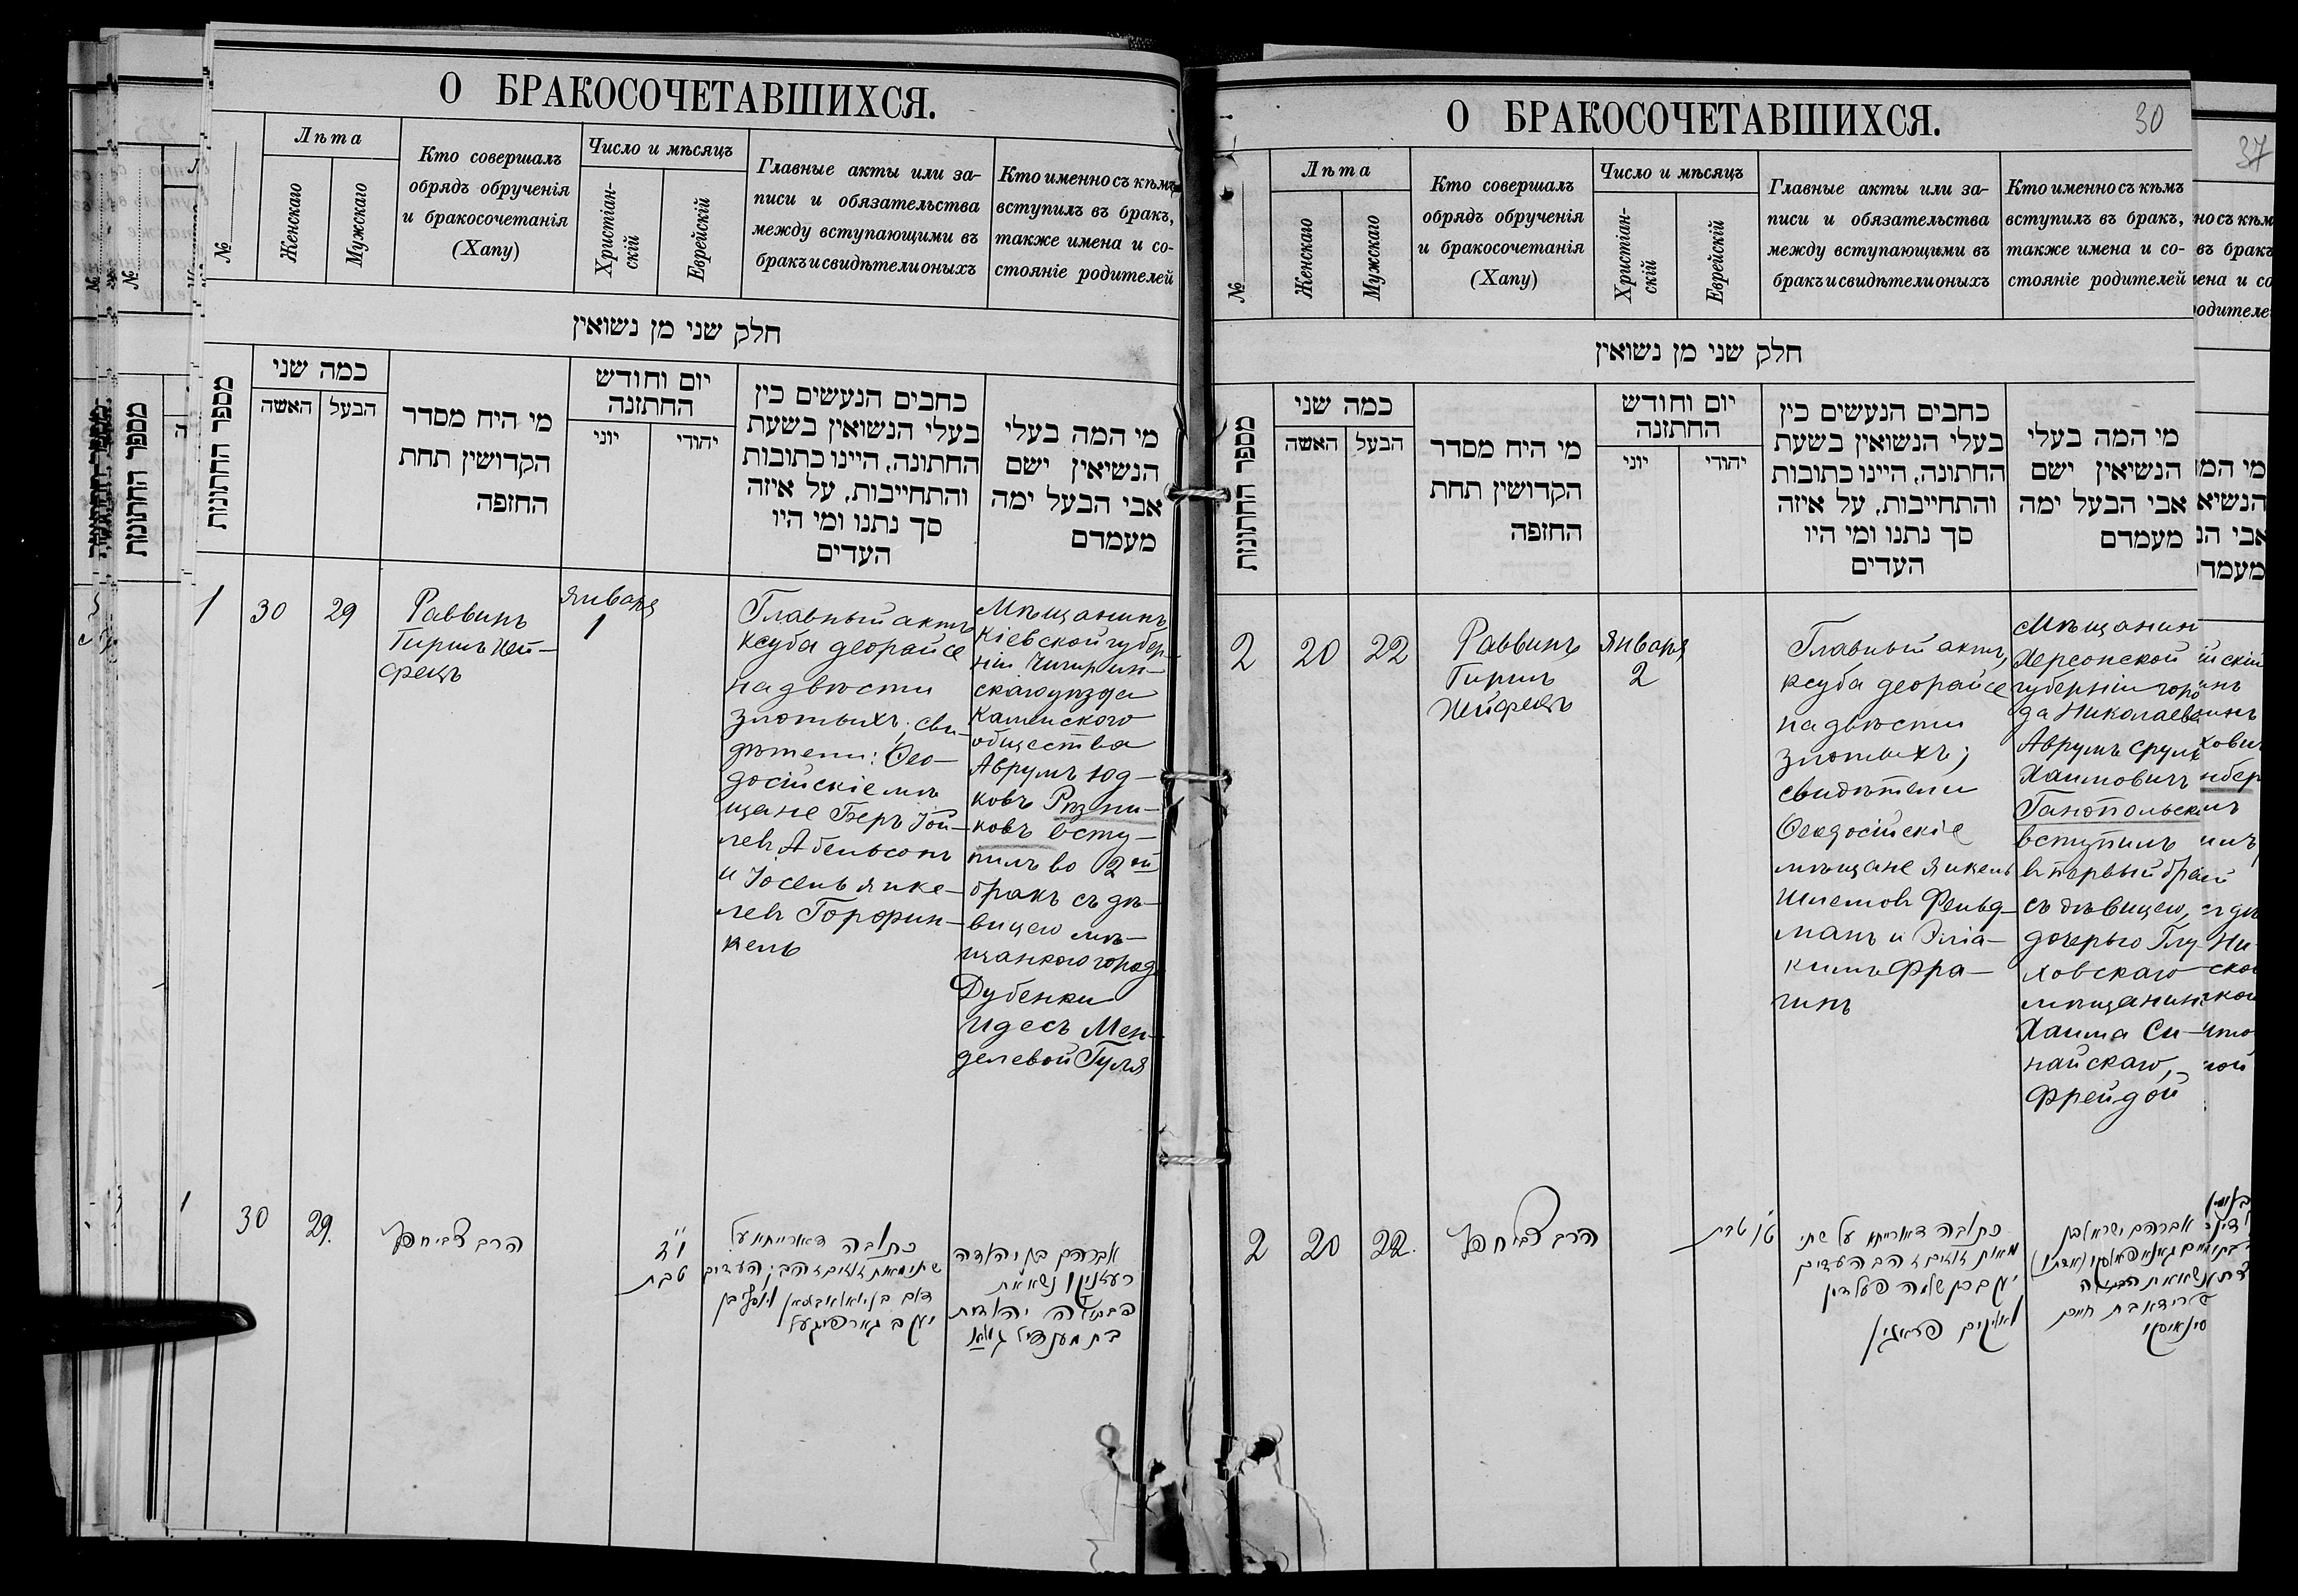 О БРАКОСОЧЕТАВШИХСЯ.
№
Лѣта
Женскаго
Мужскаго
Кто совершалъ
обрядъ обрученія
и бракосочетанія
(Хапу)
Число и мѣсяцъ
Христіан-
скій
Еврейскій
Главные акты или за-
писи и обязательства
между вступающими въ
бракъ и свидѣтели оныхъ
Кто именно съ кѣмъ
вступилъ въ бракъ,
также имена и со-
стояніе родителей
חלק שני מן נשואין
מספר החתונות
כמה שני
האשה
הבעל
מי היח מסדר
הקדושין תחת
החזפה
יום וחודש
החתזנה
יוני
יהודי
כחבים הנעשים כין
בעלי הנשואין בשעת
החתונה, היינו כתובות
והתחייבות, על איזה
סך נתנו ומי היו
העדים
מי המה בעלי
הנשיאין ישם
אבי הבעל ימה
מעמדם
1
30
29
Раввинъ
Гиршъ Хей-
фецъ
Января
1
Главный актъ
ксуба деорайсе
на двѣсти
злотыхъ; сви-
дѣтели: Ѳео-
досійскіе мѣ
щане Беръ Іой-
левъ Абельсонъ
и Іосель Янке-
левъ Горфин-
кель
Мѣщанинъ
Кіевской губер-
ніи Чигирин-
скаго уѣзда
Каменского
общества
Аврумъ Юд-
ковъ Рѣзни-
ковъ всту-
пилъ во 2ой
бракъ съ дѣ-
вицею мѣ-
щанкою города
Дубенки
Идесъ Мен-
делевой Гуля
1
30
29.
הרב צבי חפץ
י"ד
טבת
כתובה דאורייתא על
שתי מאות זוזים זהב; העדים
דוב בן יואל אבעלסאן ויוסף בן
יעקב גארפינקעל
אברהם בן יהודה
רעזניקוו נשא את
הבתולה יהודית
בת מענדיל גוליא
О БРАКОСОЧЕТАВШИХСЯ.
30
№
Лѣта
Женскаго
Мужскаго
Кто совершалъ
обрядъ обрученія
и бракосочетанія
(Хапу)
Число и мѣсяцъ
Христіан-
скій
Еврейскій
Главные акты или за-
писи и обязательства
между вступающими въ
бракъ и свидѣтели оныхъ
Кто именно съ кѣмъ
вступилъ въ бракъ,
также имена и со-
стояніе родителей
חלק שני מן נשואין
מספר החתונות
כמה שני
האשה
הבעל
מי היח מסדר
הקדושין תחת
החזפה
יום וחודש
החתזנה
יוני
יהודי
כחבים הנעשים כין
בעלי הנשואין בשעת
החתונה, היינו כתובות
והתחייבות, על איזה
סך נתנו ומי היו
העדים
מי המה בעלי
הנשיאין ישם
אבי הבעל ימה
מעמדם
2
20
22
Раввинъ
Гиршъ
Хейфецъ
Января
2
Главный актъ,
ксуба деорайсе
на двѣсти
злотыхъ;
свидѣтели
Ѳеодосійскіе
мѣщане Янкель
Шлемовъ Фельд-
манъ и Эліа-
кимъ Фра-
гинъ
Мѣщанин
Херсонской
губерніи горо
да Николаева
Аврумъ Сруль
Хаимович
Ганопольскій
вступилъ
въ первый бра
съ дѣвицею,
дочерью Глу-
ховскаго
мѣщанина
Хаима Си-
найскаго,
Фрейдой
2
20
22.
הרב צבי חפץ
טו טבת
כתובה דאורייתא על שתי
מאות זוזים זהב העדים
יעקב בן שלמה פעלדמן
ואליקים פראגין
אברהם ישראל בן
חיים גאנאפאלסקי
נשא את הבתולה
פריידא בת חיים
סינאיסקי
37